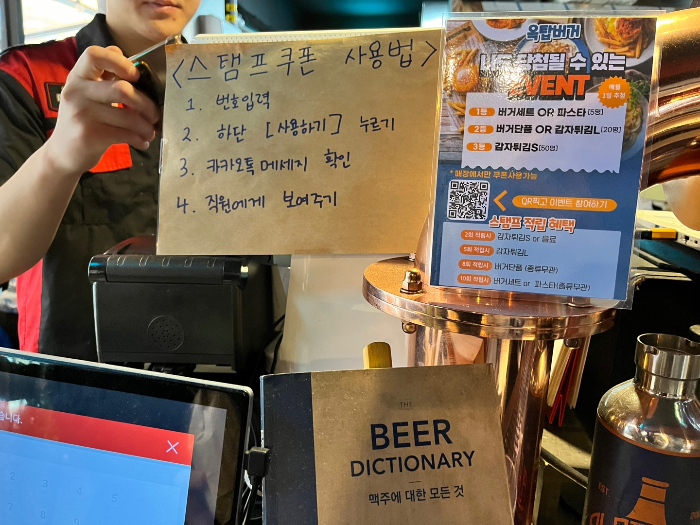 <스탬프쿠폰 사용법>
1. 번호입력
2. 하단 [사용하기] 누르기
3. 카카오톡 메세지 확인
4. 직원에게 보여주기
옥탑버거
나도 당첨될 수 있는
EVENT
매월
1일 추첨
1등 버거세트 OR 파스타(5명)
2등 버거단품 OR 감자튀김L(20명)
3등 감자튀김S(50명)
* 매장에서만 쿠폰사용가능
QR찍고 이벤트 참여하기
스탬프 적립 혜택
2회 적립시 감자튀김S or 음료
5회 적립시 감자튀김L
8회 적립시 버거단품 (종류무관)
10회 적립시 버거세트 or 파스타(종류무관)
습니다.
THE
BEER
DICTIONARY
맥주에 대한 모든 것